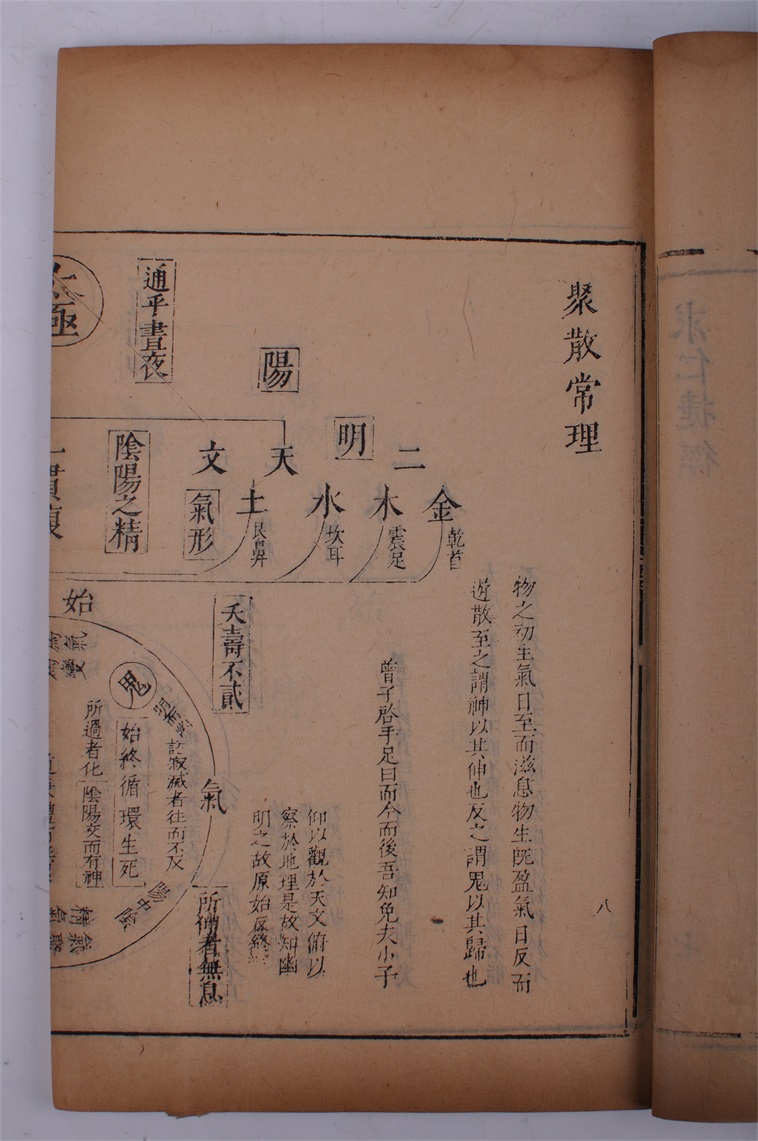 聚散常理
物之初生氣日至而滋息物生旣盈氣日反而
遊散至之謂神以其伸也反之謂鬼以其歸也
曾子啓手足曰而今而後吾知免夫小子
仰以觀於天文俯以
察於地理是故知幽
明之故原始反終
二
明
天
文
金
木
水
土
乾首
震足
坎耳
氣形
陽
夭壽不貳
氣
所俯者無息
通乎晝夜
陰陽之精
鬼
始終循環生死
訟寂滅者往而不反
所過者化
陰陽交而有神
始
極
八
求仁捷徑